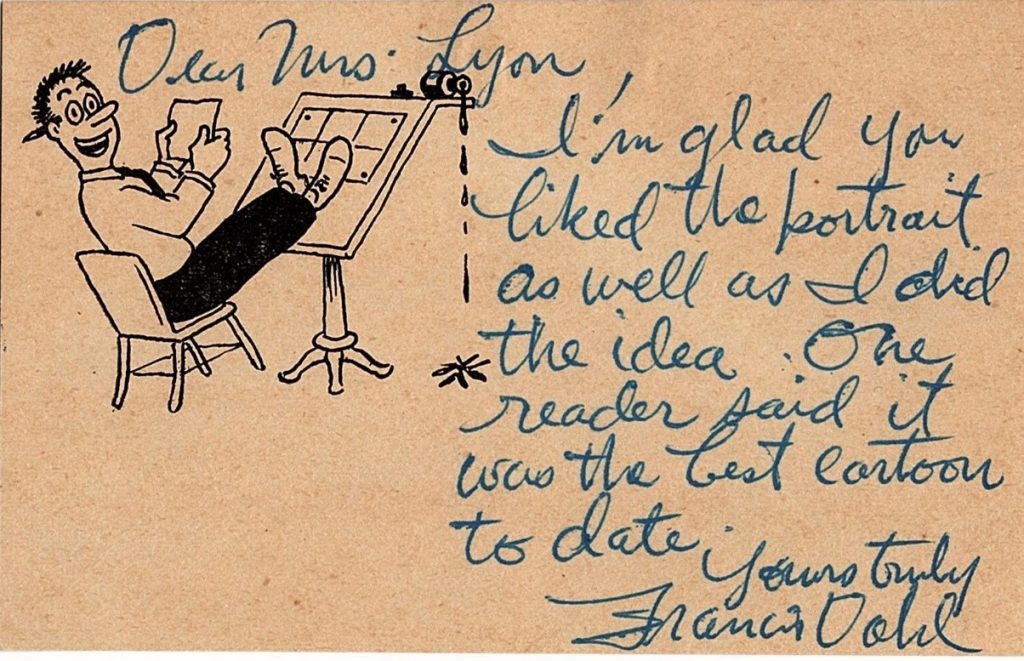 Dear Mrs. Lyon,
I'm glad you
liked the portrait
as well as I did
the idea. One
reader said it
was the best cartoon
to date.
Yours truly
Francis Dahl